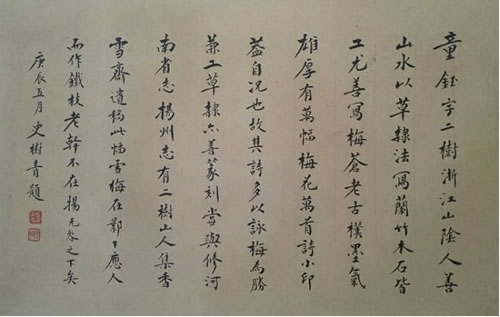 童鈺字二樹浙江山陰人善
山水以草隸法寫蘭竹木石皆
工尤善寫梅蒼老古樸墨氣
雄厚有萬幅梅花萬首詩小印
蓋自況也故其詩多以詠梅為勝
兼工草隸亦善篆刻嘗與修河
南省志揚州志有二樹山人集香
雪齋遺稿此幅雪梅在鄴下應人
而作鐵枝老幹不在揚无咎之下矣
庚辰五月史樹青題